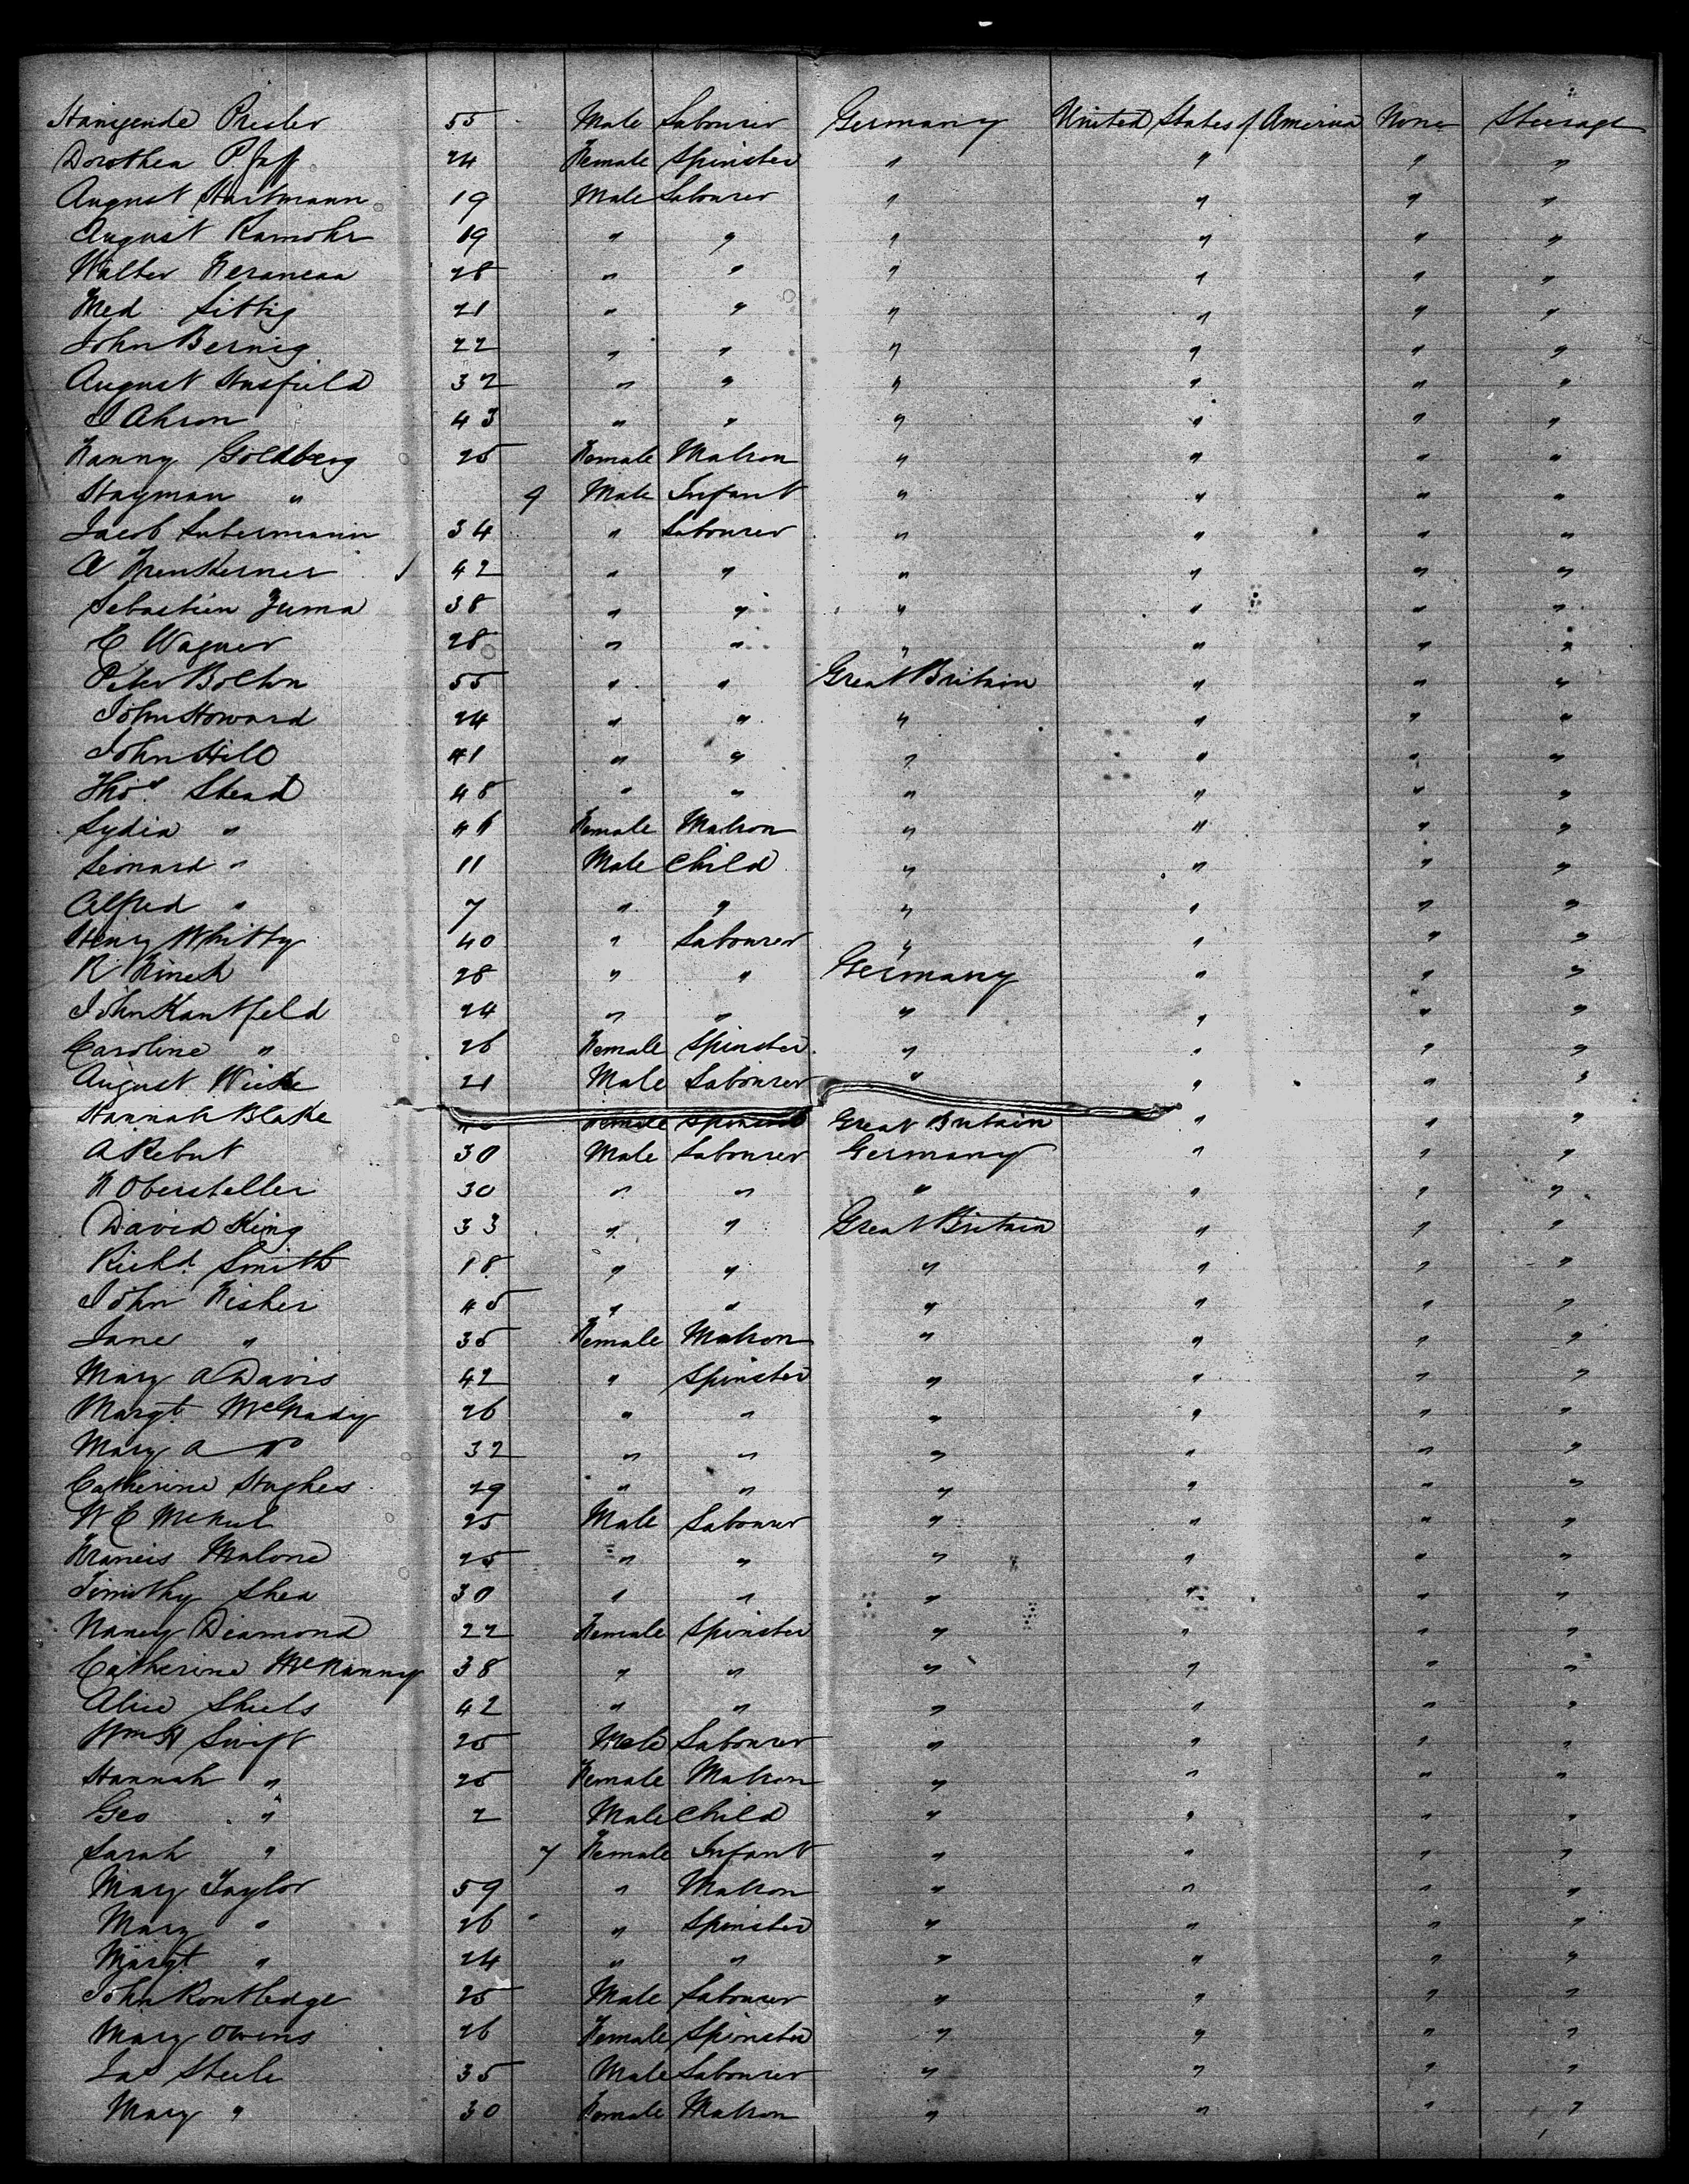 Presler 55 Male Labourer Germany United States of America None Steerage
Dorothea Pfaff 24 Female Spinster " " " "
August Hartmann 19 Male Labourer " " " "
August Ramohr 19 " " " " " "
Walter 28 " " " " " "
Fred Sittig 21 " " " " " "
John Bernig 22 " " " " " "
August Hasfield 32 " " " " " "
I Ahron 43 " " " " " "
Fanny Goldberg 25 Female Matron " " " "
Hayman " 9 Male Infant " " " "
Jacob 34 " Labourer " " " "
A 42 " " " " " "
Sebastien Zuma 38 " " " " " "
C Wagner 28 " " " " " "
Peter Bolton 55 " " Great Britain " " "
John Howard 24 " " " " " "
John Hill 41 " " " " " "
Thos Stead 48 " " " " " "
Lydia " Female Matron " " " "
Leonard " 11 Male Child " " " "
Alfred " 7 " " " " " "
Henry Whitty 40 " Labourer " " " "
R 28 " " Germany " " "
John Kantfeld 24 " " " " " "
Caroline " 26 Female Spinster " " " "
August Wicke 21 Male Labourer " " " "
Hannah Blake Female Spinster Great Britain " " "
A Rebut 30 Male Labourer Germany " " "
F Obersteller 30 " " " " " "
David King 33 " " Great Britain " " "
Richd. Smith 18 " " " " " "
John Fisher 45 " " " " " "
Jane " 35 Female Matron " " " "
Mary A Davis 42 " Spinster " " " "
Margt. 26 " " " " " "
Mary A Do 32 " " " " " "
Catherine Hughes 29 " " " " " "
W C 25 Male Labourer " " " "
Francis Malone 25 " " " " " "
Timothy Shea 30 " " " " " "
Nancy Diamond 22 Female Spinster " " " "
Catherine 38 " " " " " "
Alice Sheels 42 " " " " " "
Wm H Swift 25 Male Labourer " " " "
Hannah " 25 Female Matron " " " "
Geo " 2 Male Child " " " "
Sarah " 7 Female Infant " " " "
Mary Taylor 59 " Matron " " " "
Mary " 26 " Spinster " " " "
Margt " 24 " " " " " "
John Routledge 25 Male Labourer " " " "
Mary Owens 26 Female Spinster " " " "
Jas Steele 35 Male Labourer " " " "
Mary " 30 Female Matron " " " "